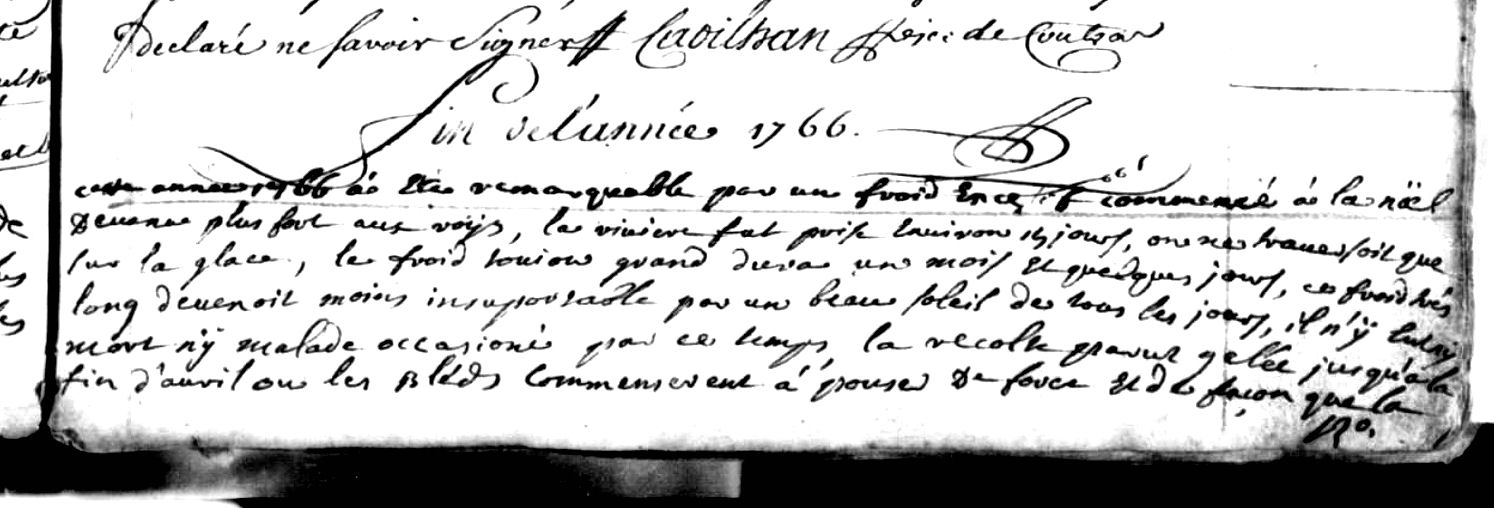 declaré ne savoir signer Caoilhan de Coutras
fin de l'année 1766.
cette annee 1766 a été remarquable par un froid commencé a la nöel
devenu plus fort aux roys, la riviere fut prise environ 15 jours, on ne traversoit que
sur la glace, le froid toujour grand dura un mois et quelques jours, ce froid très
long devenoit moins insuportable par un beau soleil de tous les jours, il n'ÿ eut nÿ
mort nÿ malade occasioné par ce temps, la recolte parut gelée jusqu'a la
fin d'avril ou les Bléds commenserent a pouser de force et de façon que la